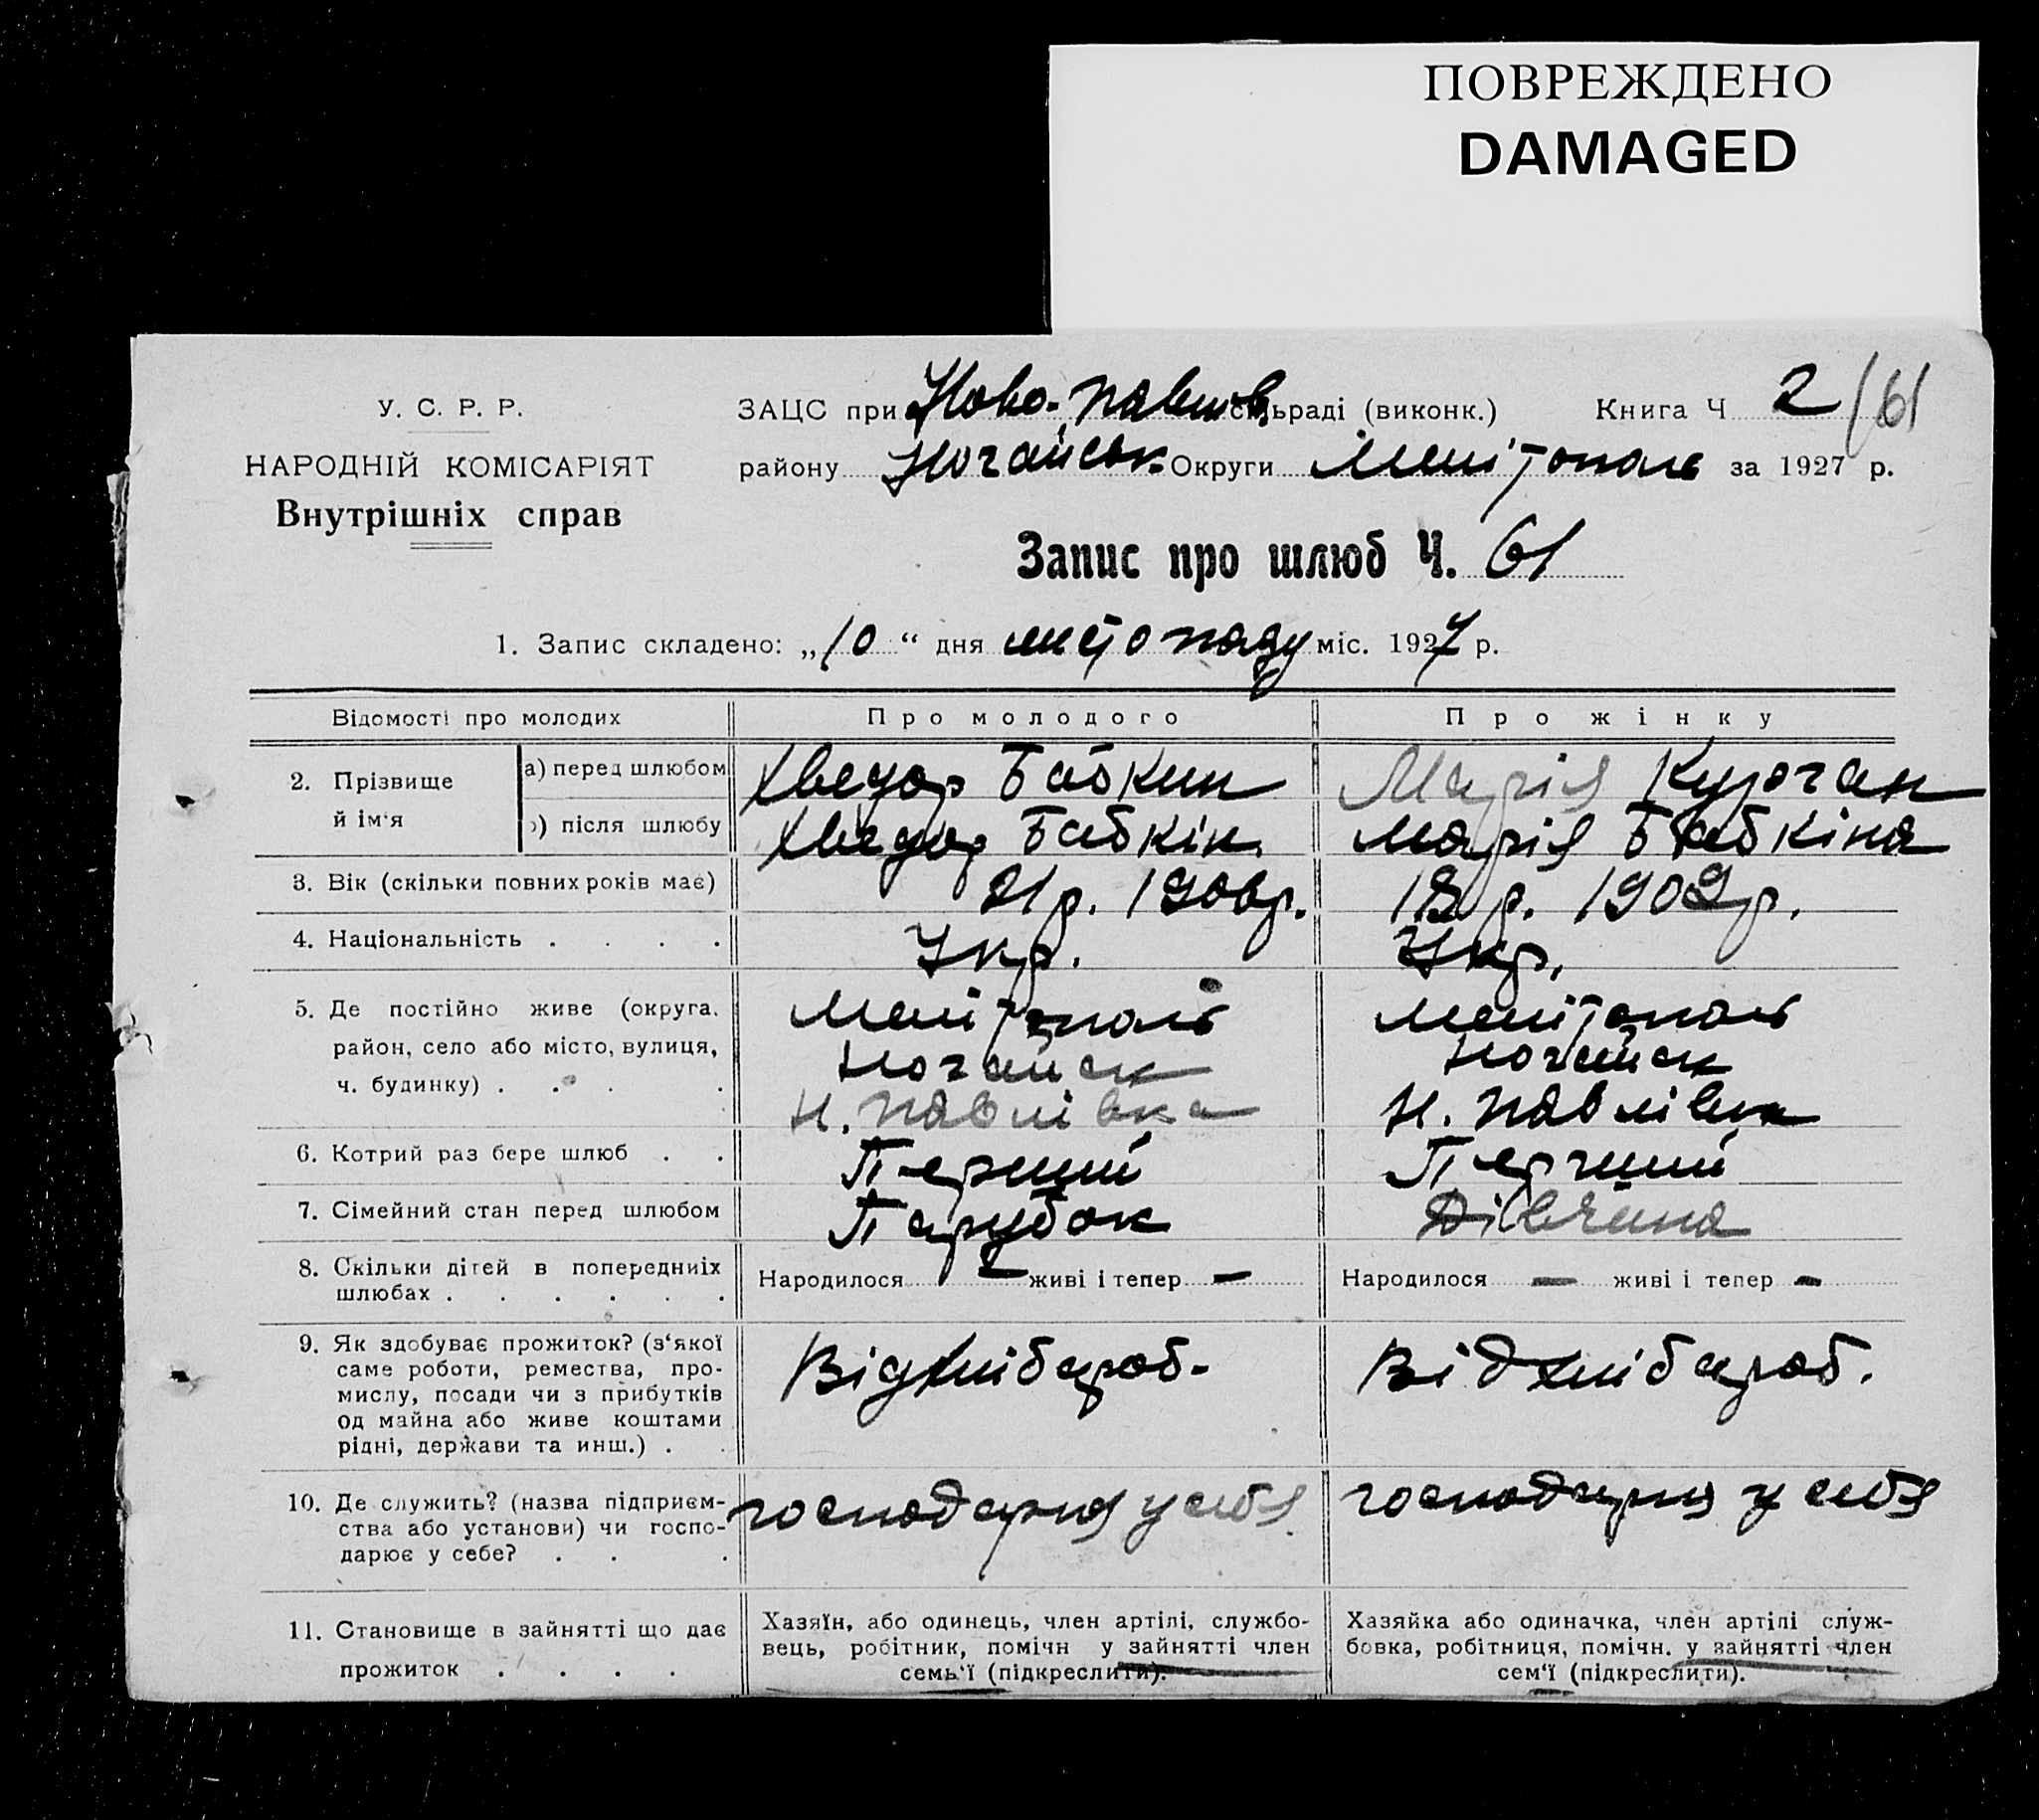 ПОВРЕЖДЕНО
DAMAGED
У. С. Р. Р.
НАРОДНІЙ КОМІСАРІЯТ
Внутрішніх справ
ЗАЦС при Ново-Павлів. сільраді (виконк.) Книга Ч 2/61
району Ногайськ. Округи Мелітополь за 1927 р.
Запис про шлюб Ч. 61
1. Запис складено: „10“ дня листопаду міс. 1927 р.
Відомості про молодих
Про молодого
Про жінку
2. Прізвище й ім‘я
а) перед шлюбом
Хведор Бабкин
Марія Курган
б) після шлюбу
Хведор Бабкін
Марія Бабкіна
3. Вік (скільки повних років має)
21 р. 1906 р.
18 р. 1909 р.
4. Національність . . . .
Укр.
Укр.
5. Де постійно живе (округа,
район, село або місто, вулиця,
ч. будинку) . . . .
Мелітополь
Ногайск
Н. Павлівка
Мелітополь
Ногайск
Н. Павлівка
6. Котрий раз бере шлюб . .
Перший
Перший
7. Сімейний стан перед шлюбом
Парубок
Дівчина
8. Скільки дітей в попередніх
шлюбах . . . . . .
Народилося — живі і тепер —
Народилося — живі і тепер —
9. Як здобуває прожиток? (з‘якої
саме роботи, ремества, про-
мислу, посади чи з прибутків
од майна або живе коштами
рідні, держави та инш.) . .
Відхлібароб.
Відхлібароб.
10. Де служить? (назва підприєм-
ства або установи) чи госпо-
дарює у себе? . . .
господария у себя
господария у себя
11. Становище в зайнятті що дає
прожиток . . . .
Хазяїн, або одинець, член артілі, службо-
вець, робітник, помічн у зайнятті член
семь‘ї (підкреслити).
Хазяйка або одиначка, член артілі служ-
бовка, робітниця, помічн. у зайнятті член
сем‘ї (підкреслити).